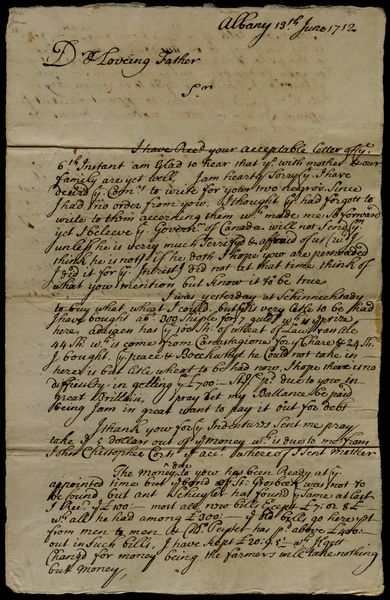 Albany 13th June 1712
Dr & Loveing Father
Sr
I have Recd your acceptable letter of ye
6th Instant am Glad to hear that ye with mother & our
family are yet well Jam hearty Sorry I have
desird ye Comrs to write for your two negros Since
J had no order from you, J thought ye had forgott to
write to them accerning them wch made me So forward
yet I beleeve ye Governr of Canada will not Send ym
unless he is verry much Terrifyd & affraid of us (wch J
think he is not) if he doth I hope you are perswaded
J did it for ye Intrest J did not at that time think of
what you mention but know it to be true
I was yesterday at Schinnechtady
to buy what I could but is very litle to be had
J have bought 200 for wch is
here has ye 100 Sh: of wheat of Law van Ale
44 Sh. wch is come from for & 24 Sh
J bought, ye peace & could not take in
here is but litle wheat to be had now, I hope there is no
difficulty in getting ye £700:— due to you in
great Brittain, pray let my Ballance be paid
being Jam in great want to pay it out for debt
I thank you for ye Indentures Sent me pray
take ye 5 dollars out of ye money wch is due to me from
John Christopher of acct. where of I Sent Mother
The money due to you has been Ready at ye
appointed time but ye bond of St: Groesbeck was not to
be found but ant Schuyler has found ye Same at last
I Recd ye £100:— most all new bills Except £7: or 8£
wch all he had among £300:— ye old bills go here yet
from men to men Coll Peter Schuyler has pd above £400:—
out in Such bills, I have kept £20: 5:— to gett
Changd for money being the farmers will take nothing
but money,